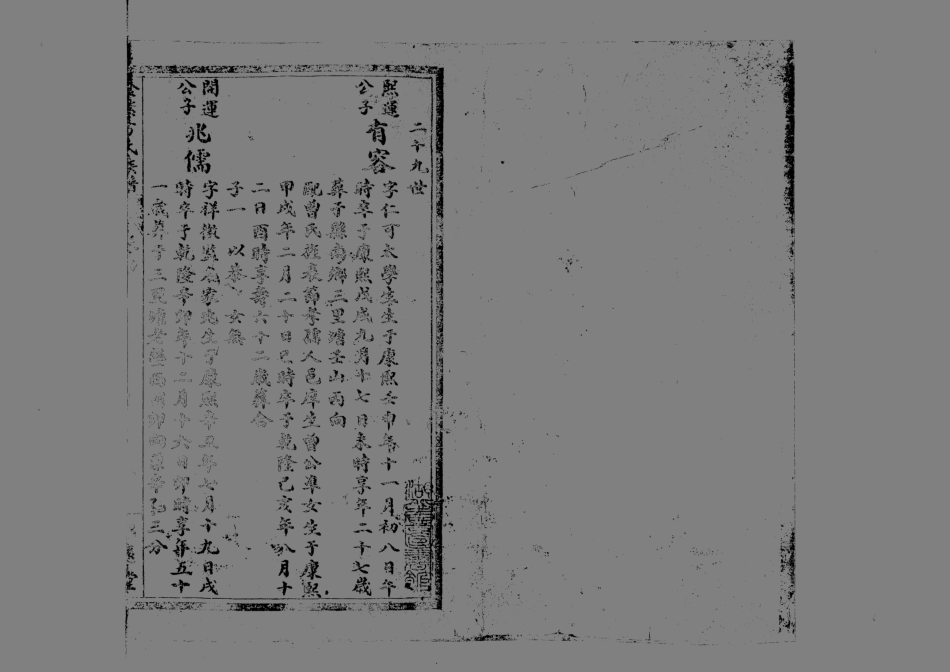 二十九世
熙運公子 有容
字仁可太學生生于康熙壬申年十一月初八日午
時卒于康熙戊戌九月十七日未時享年二十七歲
葬于縣南鄉三里塘壬山丙向
配曾氏旌表節孝孺人邑庠生曾公準女生于康熙
甲戌年二月二十日巳時卒于乾隆己亥年八月十
二日酉時享壽六十二歲葬合
子一 以恭 女無
開運公子 兆儒
字祥徵 生于康熙辛丑年七月十九日戌
時卒于乾隆辛卯年十二月十六日卯時享年五十
一歲葬于三里塘 酉山卯向 三分
氏族譜
堂